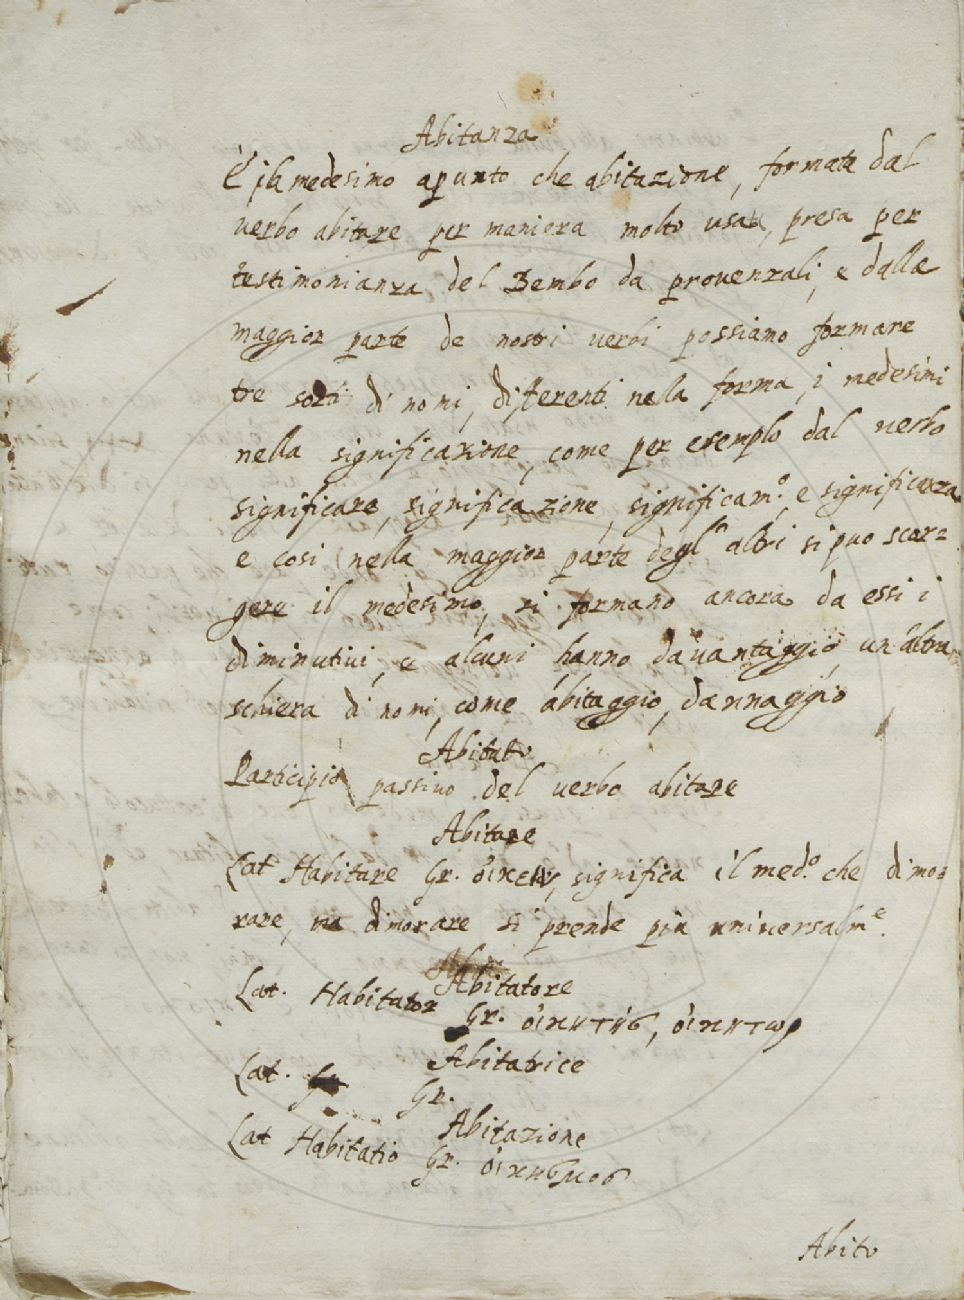 Abitanza
È il medesimo apunto che abitazione, formata dal
verbo abitare per maniera molto usata, presa per
testimonianza del Bembo da provenzali, e dalla
maggior parte de nostri verbi possiamo formare
tre sorti di nomi, differenti nella forma, i medesimi
nella significazione, come per esempio dal verbo
significare, significazione, significam.º e significanza
e cosi nella maggior parte degl' altri si puo scor=
gere il medesimo, si formano ancora da essi i
diminutivi, e alcuni hanno davantaggio un'altra
schiera di nomi, come abitaggio, dannaggio
Abitato
Participio passivo del verbo abitare
Abitare
Lat Habitare Gr. οἰκειν, significa il med.º che dimo=
rare, ma dimorare si prende più universalm.e
Abitatore
Lat. Habitator Gr. οἰκητής, οἰκητωρ
Abitatrice
Lat. Gr.
Abitazione
Lat Habitatio Gr. οἰκησμος
Abito